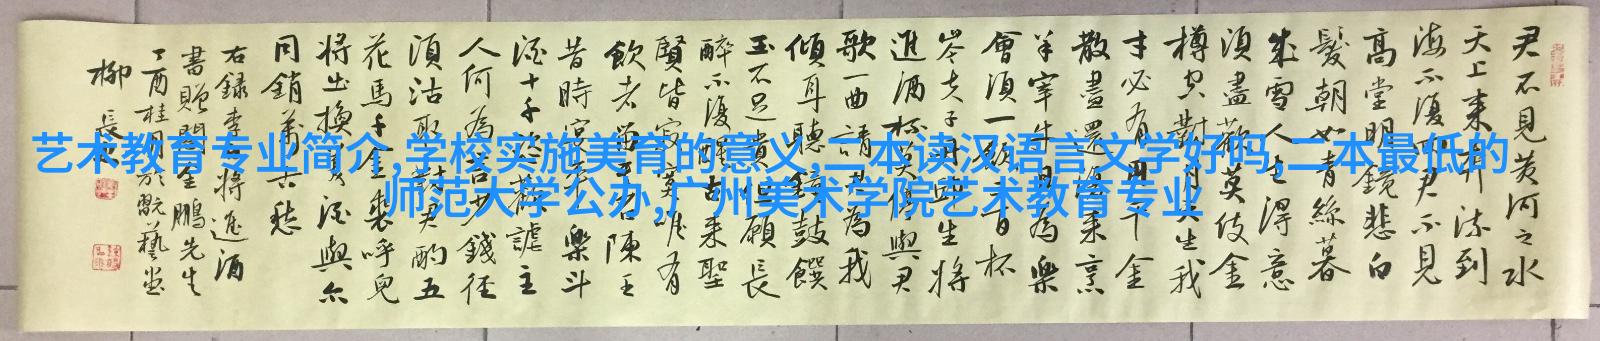 君不見黃河之水
天上来奔流到
海不復回君不見
高堂明鏡悲白
髮朝如青絲暮
成雪人生得意
須盡歡莫使金
樽空對月天生我
才必有用千金
散盡還復来烹
羊宰牛且為樂
會須一飲三百杯
岑夫子丹丘生將
進酒杯莫停與君
歌一曲請君為我
傾耳聽鐘鼓饌
玉不足貴但願長
醉不復醒古来聖
賢皆寂寞惟有
飲者留其名陳王
昔時宴平樂斗
酒十千恣歡謔主
人何為言少錢径
須沽取對君酌五
花馬千金裘呼兒
將出換美酒與尔
同銷萬古愁
右録李白將進酒
書贈金鵬先生
丁酉桂月於翫藝堂
柳長
艺术教育专业简介,学校实施美育的意义,二本读汉语言文学好吗,二本最低的
师范大学公办,广州美术学院艺术教育专业